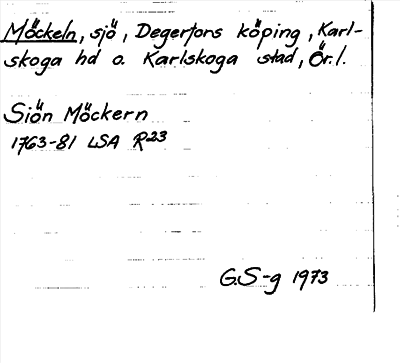 Möckeln, sjö, Degerfors köping, Karl-
skoga hd o. Karlskoga stad, Ör. l.
Siön Möckern
1763-81 LSA R23
G.S-g 1973